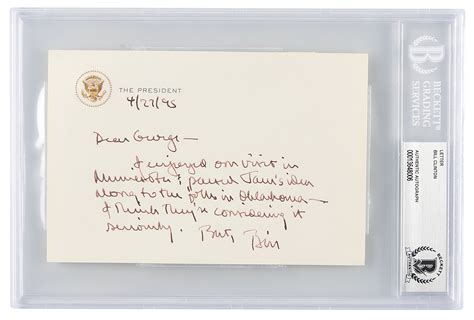 THE PRESIDENT
4/27/95
Dear George—
I enjoyed our visit in
Minnesota & passed Jam's idea
along to the folks in Oklahoma—
I think they're considering it
seriously. Best, Bill
BECKETT
GRADING
SERVICES
LETTER
BILL CLINTON
AUTHENTIC AUTOGRAPH
00013648006
BECKETT